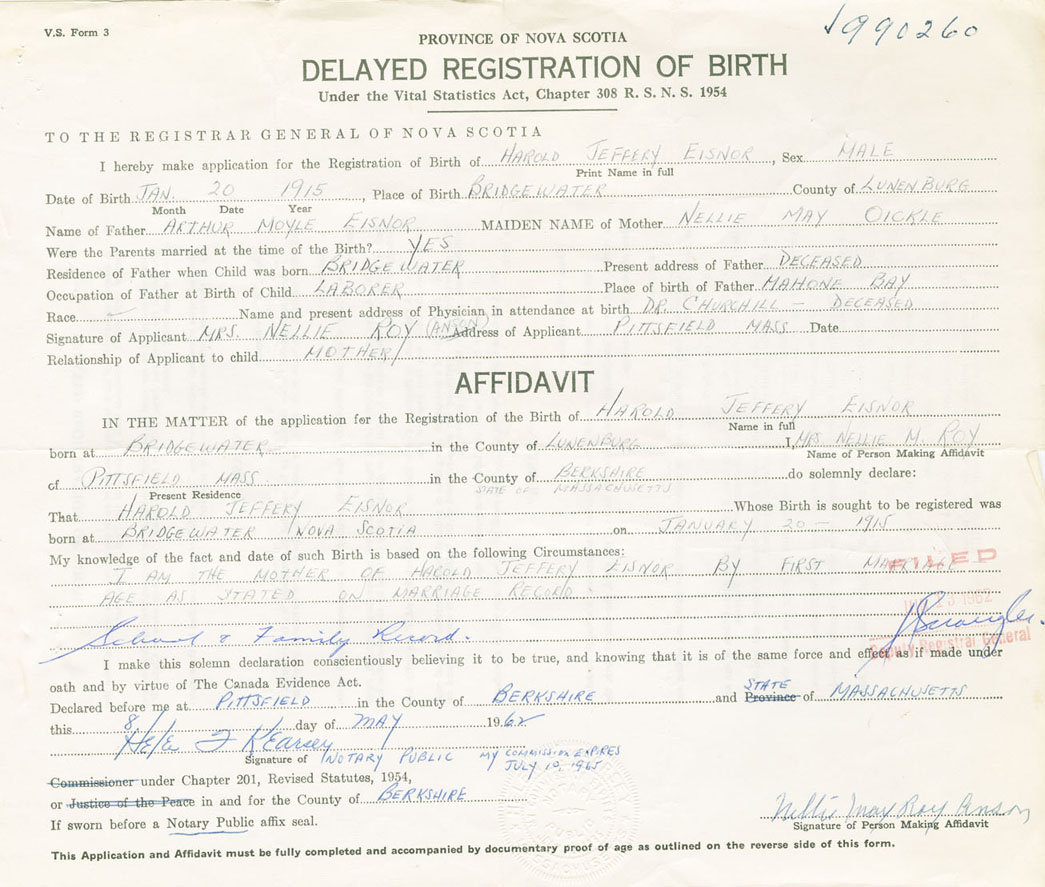 V.S. Form 3
990260
PROVINCE OF NOVA SCOTIA
DELAYED REGISTRATION OF BIRTH
Under the Vital Statistics Act, Chapter 308 R. S. N. S. 1954
TO THE REGISTRAR GENERAL OF NOVA SCOTIA
I hereby make application for the Registration of Birth of HAROLD JEFFERY EISNOR, Sex MALE
Print Name in full
Date of Birth JAN. 20 1915, Place of Birth BRIDGEWATER County of LUNENBURG
Month Date Year
Name of Father ARTHUR MOYLE EISNOR MAIDEN NAME of Mother NELLIE MAY OICKLE
Were the Parents married at the time of the Birth? YES
Residence of Father when Child was born BRIDGEWATER Present address of Father DECEASED
Occupation of Father at Birth of Child LABORER Place of birth of Father MAHONE BAY
Race Name and present address of Physician in attendance at birth DR. CHURCHILL - DECEASED
Signature of Applicant MRS. NELLIE ROY (ANSON) Address of Applicant PITTSFIELD MASS Date
Relationship of Applicant to child MOTHER
AFFIDAVIT
IN THE MATTER of the application for the Registration of the Birth of HAROLD JEFFERY EISNOR
Name in full
born at BRIDGEWATER in the County of LUNENBURG I, MRS NELLIE M. ROY
Name of Person Making Affidavit
of PITTSFIELD MASS in the County of BERKSHIRE do solemnly declare:
Present Residence STATE OF MASSACHUSETTS
That HAROLD JEFFERY EISNOR Whose Birth is sought to be registered was
born at BRIDGEWATER NOVA SCOTIA on JANUARY 20 - 1915
My knowledge of the fact and date of such Birth is based on the following Circumstances:
I AM THE MOTHER OF HAROLD JEFFERY EISNOR BY FIRST MARRIAGE
FILED
AGE AS STATED ON MARRIAGE RECORD.
23 1962
School & Family Record.
Deputy Registrar General
I make this solemn declaration conscientiously believing it to be true, and knowing that it is of the same force and effect as if made under
oath and by virtue of The Canada Evidence Act.
Declared before me at PITTSFIELD in the County of BERKSHIRE and Province STATE of MASSACHUSETTS
this 8 day of MAY 1962
Kearsey
Signature of NOTARY PUBLIC MY COMMISSION EXPIRES
JULY 10, 1965
Commissioner under Chapter 201, Revised Statutes, 1954,
or Justice of the Peace in and for the County of BERKSHIRE
If sworn before a Notary Public affix seal.
Nellie May Roy Anson
Signature of Person Making Affidavit
This Application and Affidavit must be fully completed and accompanied by documentary proof of age as outlined on the reverse side of this form.